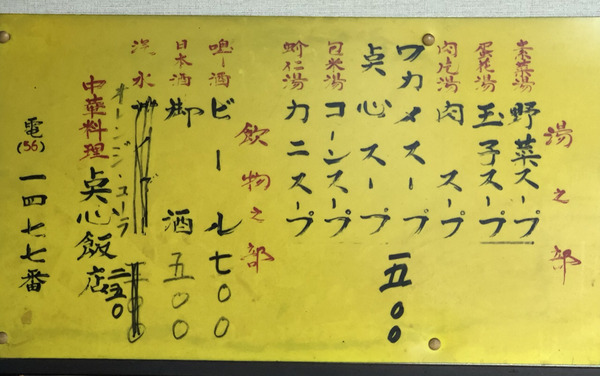 湯之部
素菜湯 野菜スープ
蛋花湯 玉子スープ
肉片湯 肉スープ
ワカメスープ 一五〇〇
点心スープ
包米湯 コーンスープ
蚧仁湯 カニスープ
飲物之部
啤酒 ビール 七〇〇
日本酒 御酒 五〇〇
汽水
オレンジ・コーラ 二五〇
中華料理 点心飯店
電(56)一四七七番